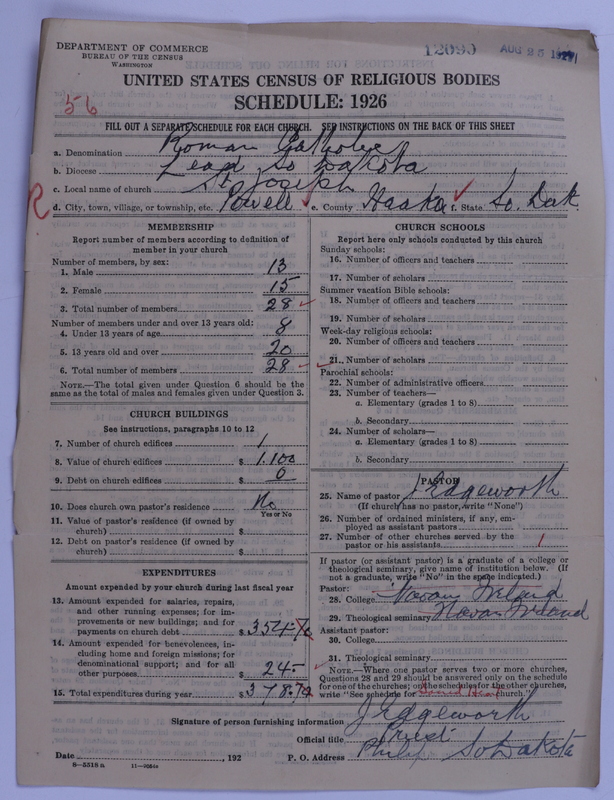 DEPARTMENT OF COMMERCE
BUREAU OF THE CENSUS
WASHINGTON
12090 AUG 25 1927
UNITED STATES CENSUS OF RELIGIOUS BODIES
SCHEDULE: 1926
56
FILL OUT A SEPARATE SCHEDULE FOR EACH CHURCH. SEE INSTRUCTIONS ON THE BACK OF THIS SHEET
a. Denomination Roman Catholic
b. Diocese Lead So Dakota
c. Local name of church St Joseph
R d. City, town, village, or township, etc. Powell e. County Haakon f. State So. Dak.
MEMBERSHIP
Report number of members according to definition of
member in your church
Number of members, by sex:
1. Male 13
2. Female 15
3. Total number of members 28
Number of members under and over 13 years old:
4. Under 13 years of age 8
5. 13 years old and over 20
6. Total number of members 28
NOTE.—The total given under Question 6 should be the
same as the total of males and females given under Question 3.
CHURCH BUILDINGS
See instructions, paragraphs 10 to 12
7. Number of church edifices 1
8. Value of church edifices $ 1,100
9. Debt on church edifices $ 0
10. Does church own pastor's residence No
Yes or No
11. Value of pastor's residence (if owned by
church) $
12. Debt on pastor's residence (if owned by
church) $
EXPENDITURES
Amount expended by your church during last fiscal year
13. Amount expended for salaries, repairs,
and other running expenses; for im-
provements or new buildings; and for
payments on church debt $ 354.70
14. Amount expended for benevolences, in-
cluding home and foreign missions; for
denominational support; and for all
other purposes $ 24-
15. Total expenditures during year $ 378.70
CHURCH SCHOOLS
Report here only schools conducted by this church
Sunday schools:
16. Number of officers and teachers
17. Number of scholars
Summer vacation Bible schools:
18. Number of officers and teachers
19. Number of scholars
Week-day religious schools:
20. Number of officers and teachers
21. Number of scholars
Parochial schools:
22. Number of administrative officers
23. Number of teachers—
a. Elementary (grades 1 to 8)
b. Secondary
24. Number of scholars—
a. Elementary (grades 1 to 8)
b. Secondary
PASTOR
25. Name of pastor J Edgeworth
(If church has no pastor, write "None")
26. Number of ordained ministers, if any, em-
ployed as assistant pastors
27. Number of other churches served by the
pastor or his assistants 1
If pastor (or assistant pastor) is a graduate of a college or
theological seminary, give name of institution below. (If
not a graduate, write "No" in the space indicated.)
Pastor:
28. College Navan Ireland
29. Theological seminary Navan Ireland
Assistant pastor:
30. College
31. Theological seminary
NOTE.—Where one pastor serves two or more churches,
Questions 28 and 29 should be answered only on the schedule
for one of the churches; on the schedules for the other churches,
write "See schedule for Sacred Heart church."
Signature of person furnishing information J Edgeworth
Official title Priest
Date , 192 P. O. Address Philip So Dakota
8—5518 a